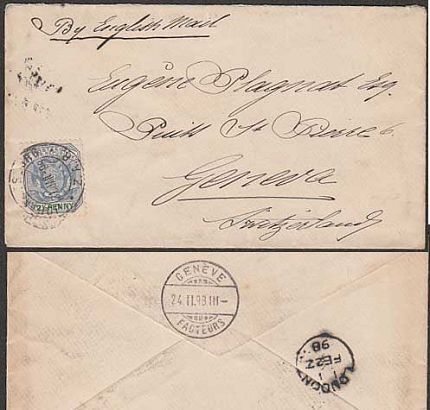 By English Mail
Eugène Plagnat Esq.
Puits St Pierre 6
Geneva
Switzerland
Z.A.R.
2½ PENNY
GENÈVE
24.II.98.III-
FACTEURS
LONDON
FE 22
98